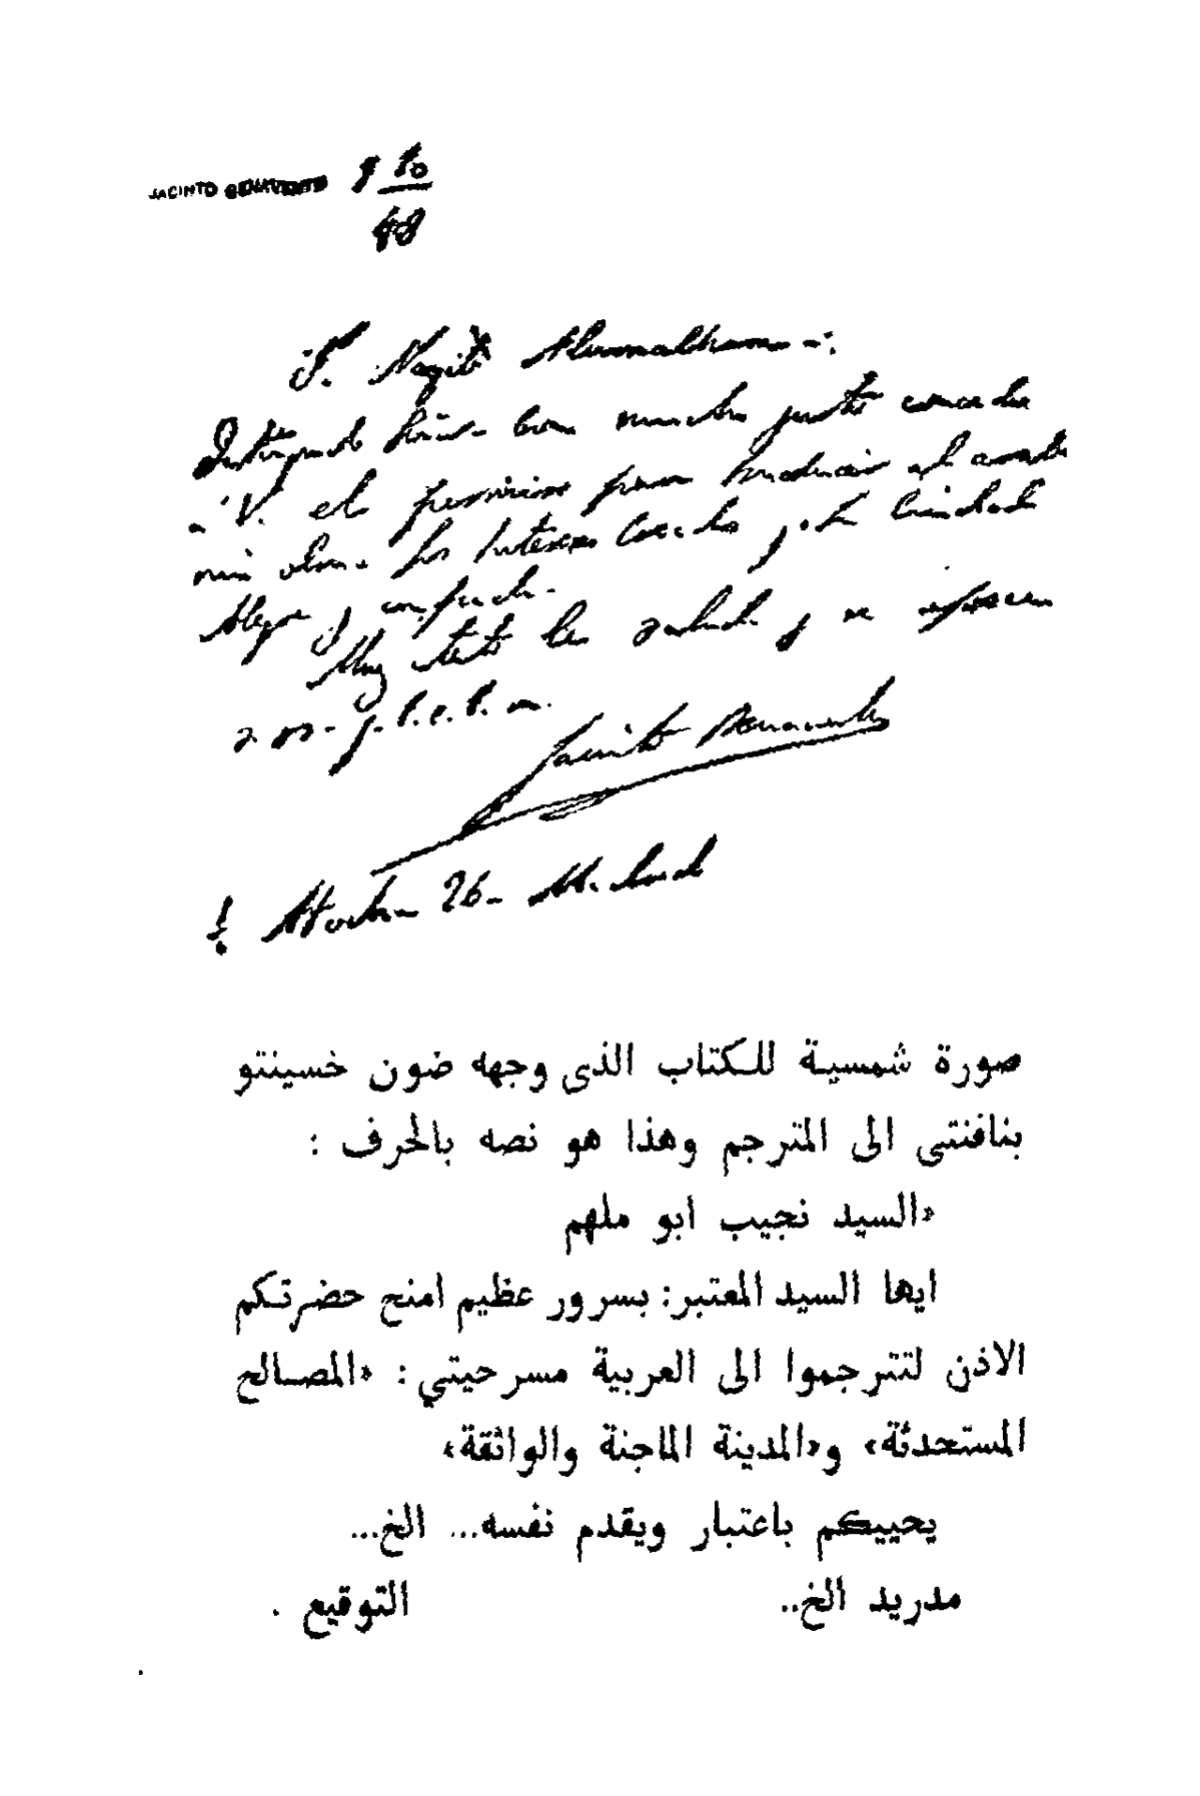 JACINTO BENAVENTE 9 10
48
Sr. Nagib Abumalham -:
Distinguido Señor: Con mucho gusto concedo
a V. el permiso para traducir al arabe
mis obras Los Intereses Creados y La Ciudad
Alegre y confiada.
Muy atento le saluda y se ofrece
s. s. q. b. s. m.
Jacinto Benavente
Atocha 26- Madrid
صورة شمسية للكتاب الذى وجهه ضون خسينتو
بنافنتى الى المترجم وهذا هو نصه بالحرف :
«السيد نجيب ابو ملهم
ايها السيد المعتبر: بسرور عظيم امنح حضرتكم
الاذن لتترجموا الى العربية مسرحيتي : «المصالح
المستحدثة» و«المدينة الماجنة والواثقة»
يحييكم باعتبار ويقدم نفسه... الخ...
مدريد الخ.. التوقيع .